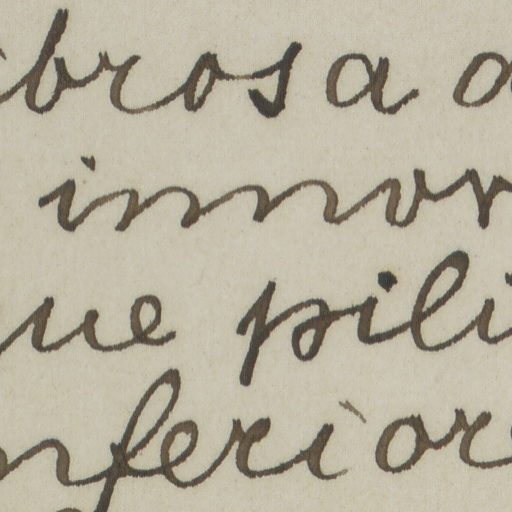 brosa a
innov
ue pili
nferior